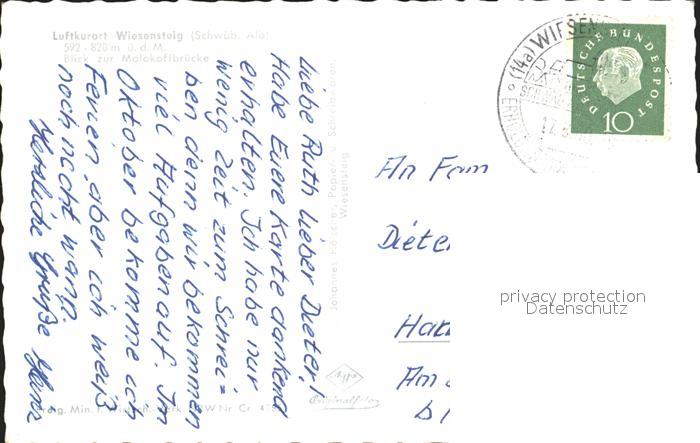 Luftkurort Wiesensteig (Schwäb. Alb)
592 - 820 m ü. d. M.
Blick zur Malakoffbrücke
Liebe Ruth lieber Dieter!
Habe Euere Karte dankend
erhalten. Ich habe nur
wenig Zeit zum Schrei=
ben denn wir bekommen
viel Aufgaben auf. Im
Oktober bekomme ich
Ferien, aber ich weiß
noch nocht wann.
Herzliche Grüße
Johannes Papier- u. Schreibwaren,
Wiesensteig
Agfa
An Fam
Dieter
Han
Am
(14a) WIESEN
DEUTSCHE BUNDESPOST
10
privacy protection
Datenschutz